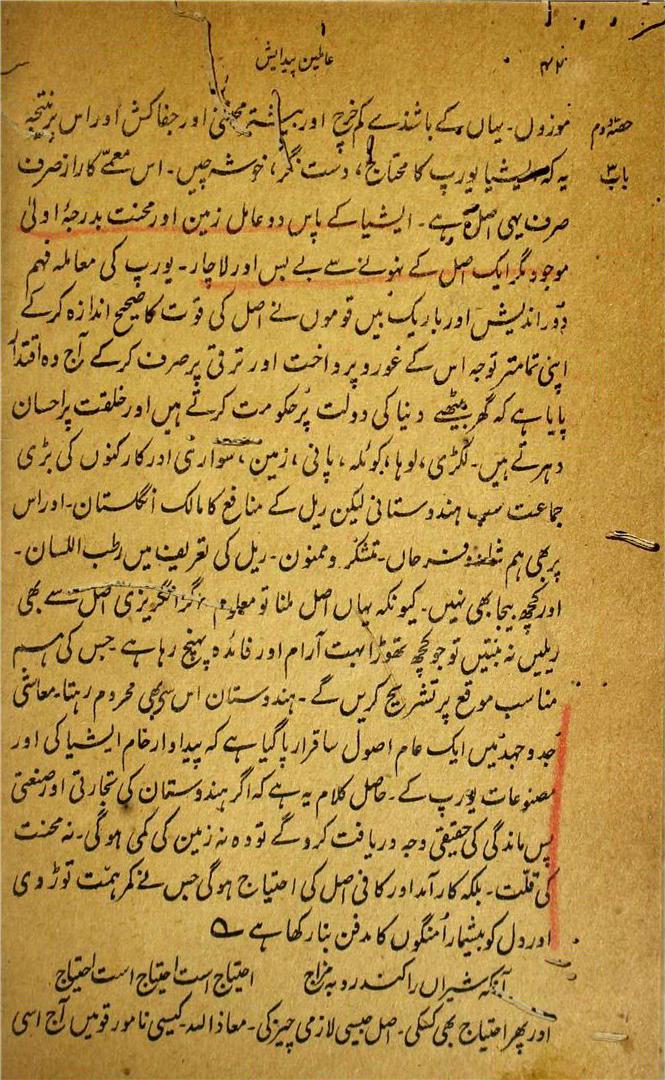 عاملین پیدایش
۴۲
حصّہ دوم
باب ۳
موزوں۔ یہاں کے باشندے کم خرچ اور بیشتر محنتی اور جفاکش اور اس پر نتیجہ
یہ کہ ایشیا یورپ کا محتاج، دست نگر، خوشہ چیں۔ اس معمّے کا راز صرف
صرف یہی اصل ہے۔ ایشیا کے پاس دو عامل زمین اور محنت بدرجۂ اولیٰ
موجود مگر ایک اصل کے نہونے سے بے بس اور لاچار۔ یورپ کی معاملہ فہم
دُور اندیش اور باریک بیں قوموں نے اصل کی قوّت کا صحیح اندازہ کر کے
اپنی تمامتر توجہ اس کے غور و پرداخت اور ترقی پر صرف کر کے آج وہ اقتدار
پایا ہے کہ گھر بیٹھے دنیا کی دولت پر حکومت کرتے ہیں اور خلقت پر احسان
دہرتے ہیں۔ لکڑی، لوہا، کوئلہ، پانی، زمین، سواری اور کارکنوں کی بڑی
جماعت سب ہندوستانی لیکن ریل کے منافع کا مالک انگلستان۔ اور اس
پر بھی ہم شاداں و فرحاں۔ متشکر و ممنون۔ ریل کی تعریف میں رطب اللسان۔
اور کچھ بیجا بھی نہیں۔ کیونکہ یہاں اصل ملنا تو معلوم مگر انگریزی اصل سے بھی
ریلیں نہ بنتیں تو جو کچھ تھوڑا بہت آرام اور فائدہ پہنچ رہا ہے جس کی ہم
مناسب موقع پر تشریح کریں گے۔ ہندوستان اس سے بھی محروم رہتا۔ معاشی
جدوجہد میں ایک عام اصول سا قرار پا گیا ہے کہ پیداوار خام ایشیا کی اور
مصنوعات یورپ کے۔ حاصل کلام یہ ہے کہ اگر ہندوستان کی تجارتی اور صنعتی
پس ماندگی کی حقیقی وجہ دریافت کرو گے تو وہ نہ زمین کی کمی ہو گی۔ نہ محنت
کی قلّت۔ بلکہ کارآمد اور کافی اصل کی احتیاج ہو گی جس نے کمر ہمّت توڑ دی
اور دل کو بیشمار اُمنگوں کا مدفن بنا رکھا ہے ؎
آنکہ شیراں را کند روبہ مزاج احتیاج است احتیاج است احتیاج
اور پھر احتیاج بھی کس کی۔ اصل جیسی لازمی چیز کی۔ معاذ اللہ۔ کیسی نامور قومیں آج اسی